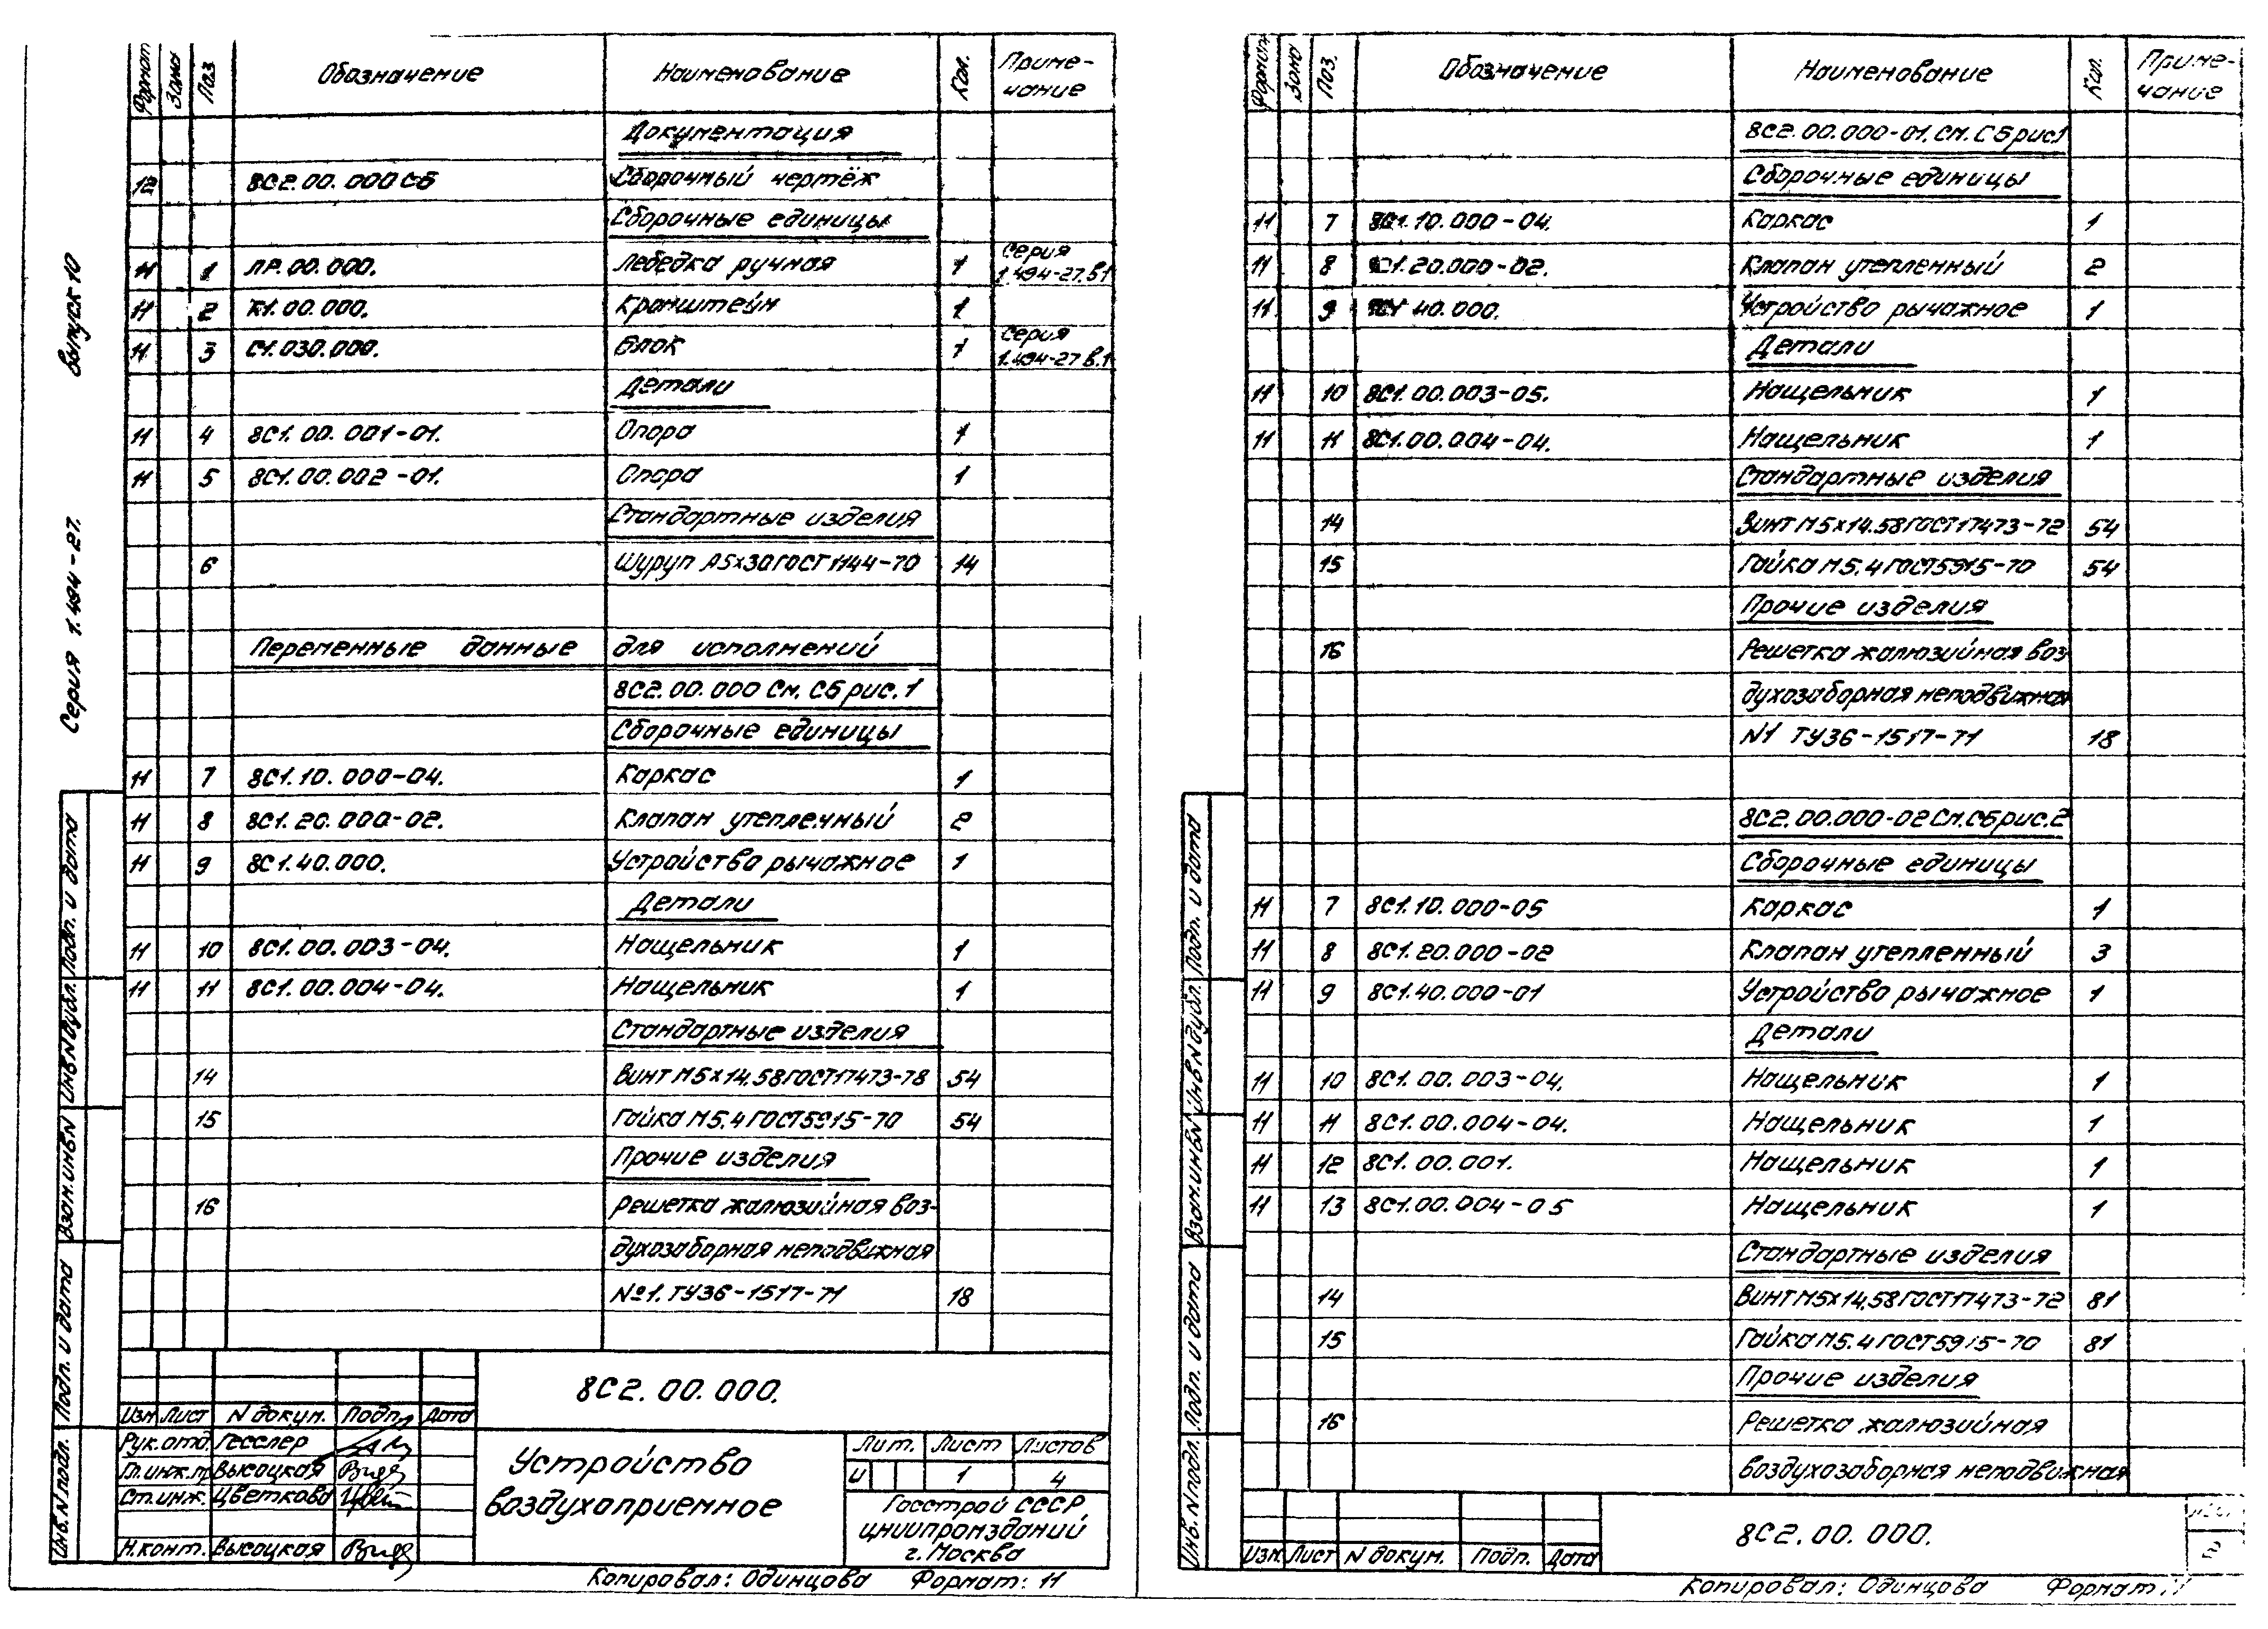 Серия 1.494-27. Выпуск 10
Формат Зона Поз. Обозначение Наименование Кол. Приме-
чание
Документация
12 8С2.00.000СБ Сборочный чертёж
Сборочные единицы
11 1 ЛР.00.000. Лебедка ручная 1 Серия
1.494-27.В.1
11 2 К1.00.000. Кронштейн 1
11 3 С1.030.000. Блок 1 Серия
1.494-27 В.1
Детали
11 4 8С1.00.001-01. Опора 1
11 5 8С1.00.002-01. Опора 1
Стандартные изделия
6 Шуруп А5х30 ГОСТ 1144-70 14
Переменные данные для исполнений
8С2.00.000 См. СБ рис.1
Сборочные единицы
11 7 8С1.10.000-04. Каркас 1
11 8 8С1.20.000-02. Клапан утепленный 2
11 9 8С1.40.000. Устройство рычажное 1
Детали
11 10 8С1.00.003-04. Нащельник 1
11 11 8С1.00.004-04. Нащельник 1
Стандартные изделия
14 Винт М5х14.58 ГОСТ 17473-78 54
15 Гайка М5.4 ГОСТ 5915-70 54
Прочие изделия
16 Решетка жалюзийная воз-
духозаборная неподвижная
№1. ТУ36-1517-71 18
8С2.00.000.
Изм Лист N докум. Подп. Дата
Рук.отд. Гесслер
Гл.инж.пр Высоцкая
Ст.инж. Цветкова
Н.конт. Высоцкая
Устройство
воздухоприемное
Лит. Лист Листов
И 1 4
Госстрой СССР
ЦНИИпромзданий
г. Москва
Инв.N подл. Подп. и дата Взам.инв.N Инв.N дубл. Подп. и дата
Копировал: Одинцова Формат: 11
Формат Зона Поз. Обозначение Наименование Кол. Приме-
чание
8С2.00.000-01. См. СБ рис1
Сборочные единицы
11 7 8С1.10.000-04. Каркас 1
11 8 8С1.20.000-02. Клапан утепленный 2
11 9 8С1 40.000. Устройство рычажное 1
Детали
11 10 8С1.00.003-05. Нащельник 1
11 11 8С1.00.004-04. Нащельник 1
Стандартные изделия
14 Винт М5х14.58 ГОСТ 17473-72 54
15 Гайка М5.4 ГОСТ 5915-70 54
Прочие изделия
16 Решетка жалюзийная воз-
духозаборная неподвижная
N1 ТУ36-1517-71 18
8С2.00.000-02 См.СБ рис.2
Сборочные единицы
11 7 8С1.10.000-05 Каркас 1
11 8 8С1.20.000-02 Клапан утепленный 3
11 9 8С1.40.000-01 Устройство рычажное 1
Детали
11 10 8С1.00.003-04. Нащельник 1
11 11 8С1.00.004-04. Нащельник 1
11 12 8С1.00.001. Нащельник 1
11 13 8С1.00.004-05 Нащельник 1
Стандартные изделия
14 Винт М5х14.58 ГОСТ 17473-72 81
15 Гайка М5.4 ГОСТ 5915-70 81
Прочие изделия
16 Решетка жалюзийная
воздухозаборная неподвижная
8С2.00.000.
Лист
2
Изм Лист N докум. Подп. Дата
Инв.N подл. Подп. и дата Взам.инв.N Инв.N дубл. Подп. и дата
Копировал: Одинцова Формат